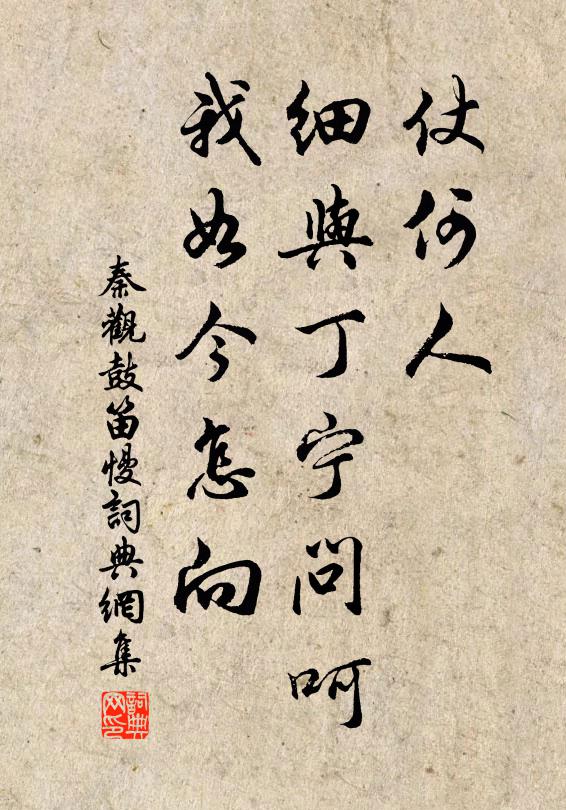 仗何人
細與丁宁問呵
我如今怎向
秦觀鼓笛慢詞典網集
詞典网印